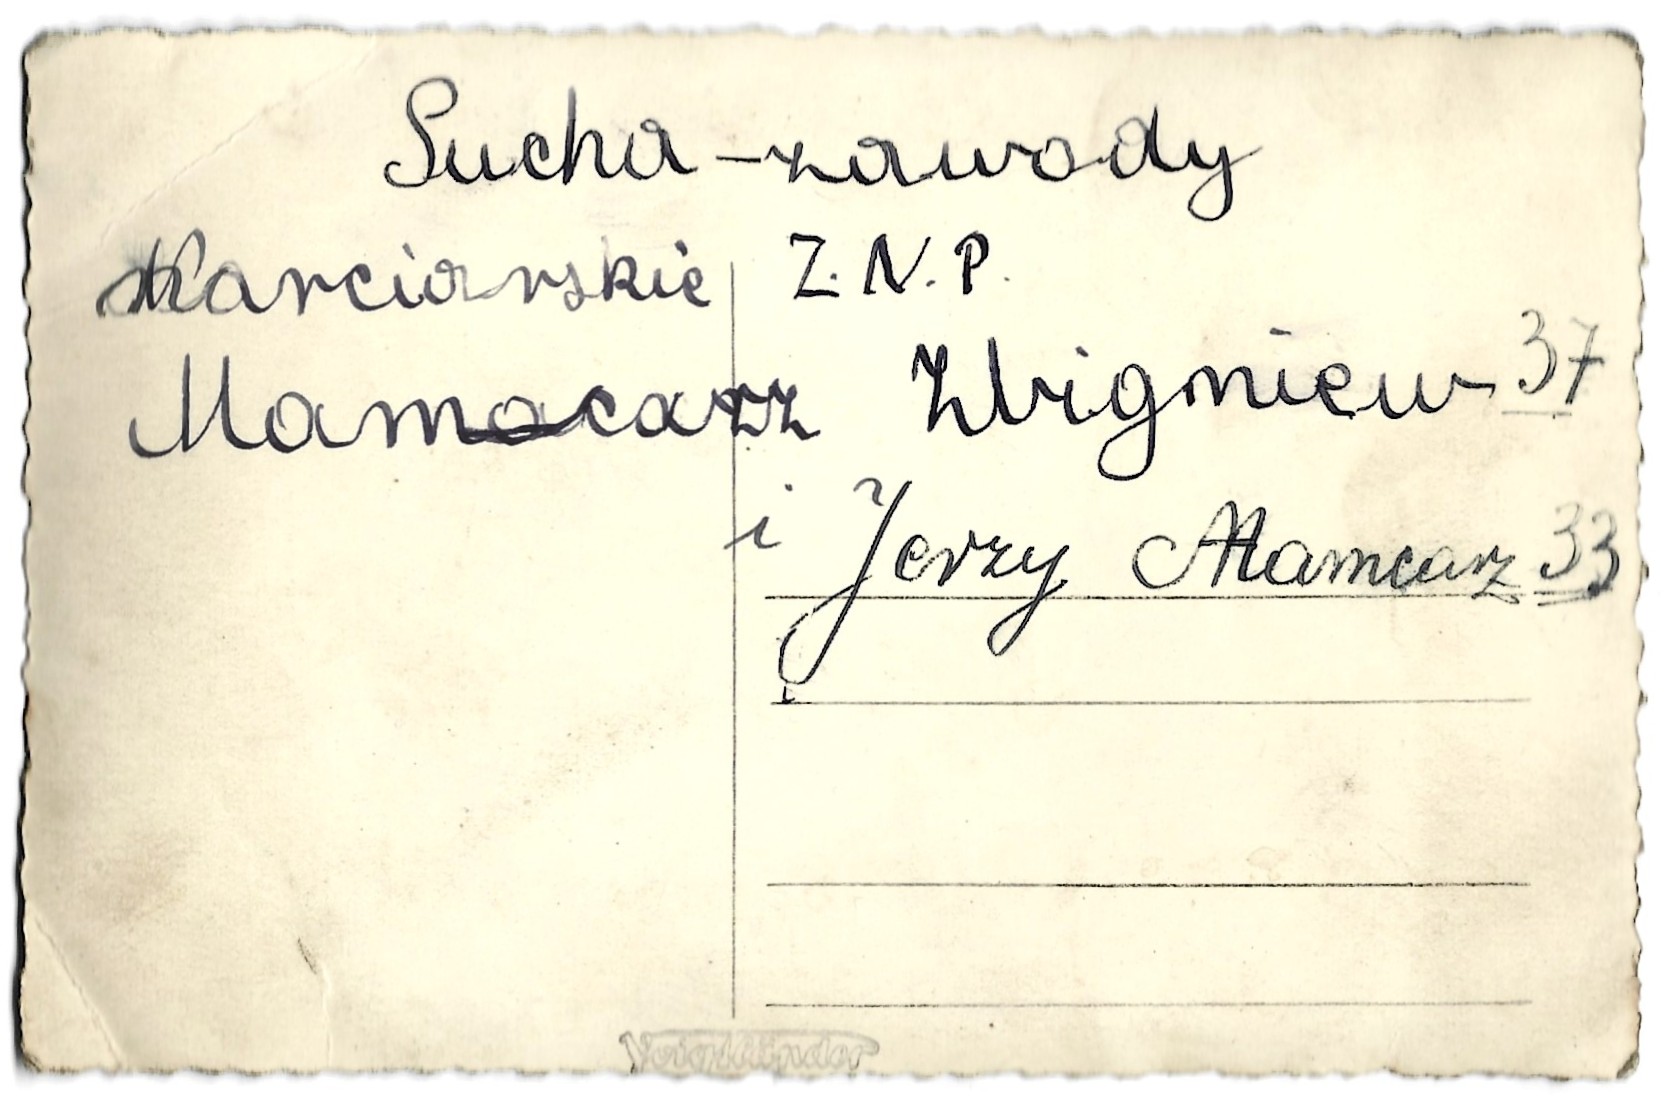 Sucha – zawody
Narciarskie Z. N. P.
Mamcarz Zbigniew 37
i Jerzy Mamcarz 33
Voigtländer